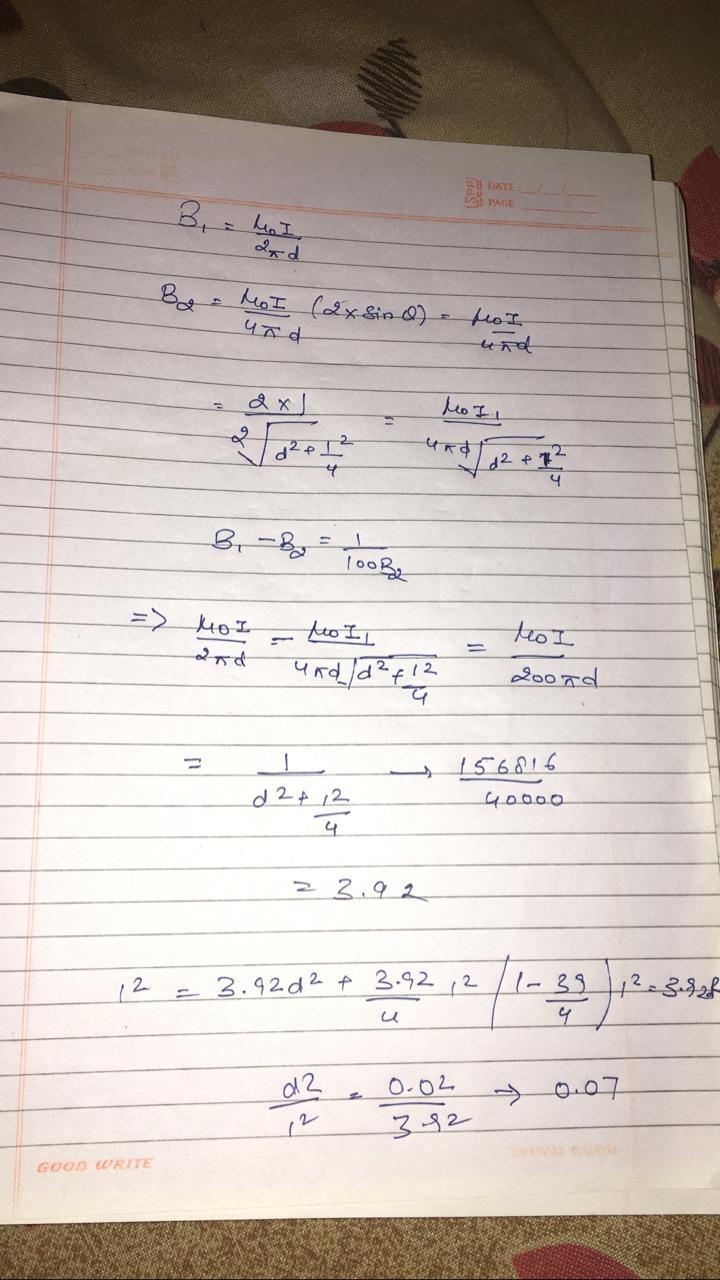 DATE: __/__/__
PAGE
B₁ = μ₀I / 2πd
B₂ = μ₀I / 4πd (2 × sin Q) = μ₀I / 4πd
= 2 × l / 2√(d² + l²/4) = μ₀Il / 4πd√(d² + l²/4)
B₁ - B₂ = 1 / 100B₂
=> μ₀I / 2πd - μ₀Il / 4πd√(d² + l²/4) = μ₀I / 200πd
= 1 / (d² + l²/4) → 156816 / 40000
= 3.92
l² = 3.92d² + 3.92/4 l² (1 - 39/4) l² = 3.92d
d2 / l² = 0.02 / 3.92 → 0.07
GOOD WRITE